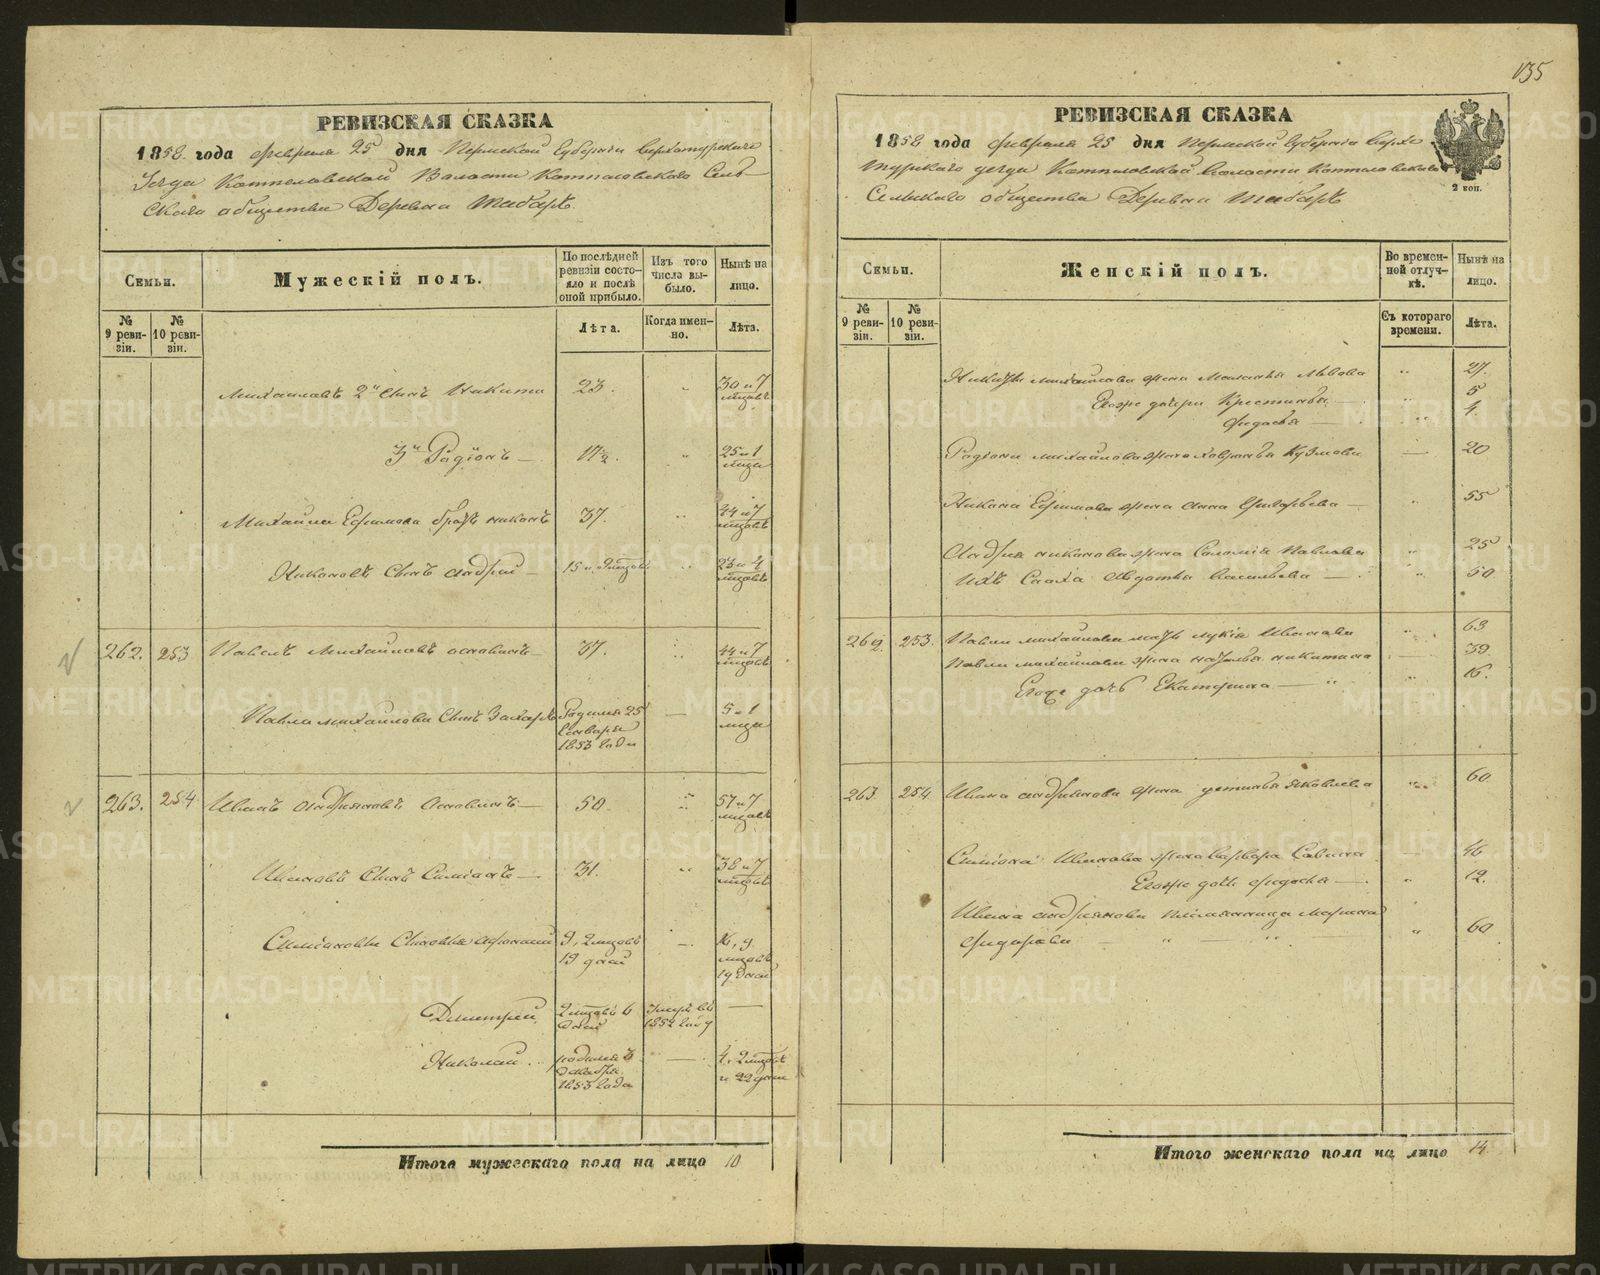 135
РЕВИЗСКАЯ СКАЗКА
1858. года февраля 25 дня Пермской Губернiи Верхотурскаго
Уезда Коптеловской Волости Коптеловскаго Сель-
скаго общества Деревни
Семьи.
Мужескiй полъ.
По послѣдней ревизiи состо-
яло и послѣ оной прибыло.
Изъ того числа вы-
было.
Нынѣ на лицо.
№ 9 реви-
зiи.
№ 10 реви-
зiи.
Лѣта.
Когда имен-
но.
Лѣта.
Михайловъ 2й сынъ Никита 23. " 30 и 7 мцовъ
3й Радiонъ — 17½. " 25 и 1 мца
Михайла Ефимова братъ Никонъ 37. " 44 и 7 мцовъ
Никоновъ Сынъ Андрей — 15 и 9 мцов " 23 и 4 мцовъ
262. 253 Павелъ Михайловъ — 37. " 44 и 7 мцовъ
Павла Михайлова Сынъ Захаръ Родился 25 Января 1853 года — 5 и 1 мца
263. 254 Иванъ Андрiяновъ — 50. " 57 и 7 мцовъ
Ивановъ Сынъ Симiонъ — 31. " 38 и 7 мцовъ
Симiоновы Сыновья 9, 2 мцовъ 19 дней — 16, 9 мцовъ 19 дней
Дмитрей 2 мцовъ 6 дней 1852 году —
Николай родился 6 Декабря 1853 года — 4, 2 мцовъ и 22 дни
Итого мужескаго пола на лицо 10
РЕВИЗСКАЯ СКАЗКА
1858 года февраля 25 дня Пермской Губернiи Верхо-
турскаго уезда Коптеловской Волости Коптеловскаго
Сельскаго общества Деревни
2 коп.
Семьи.
Женскiй полъ.
Во времен-
ной отлуч-
кѣ.
Нынѣ на лицо.
№ 9 реви-
зiи.
№ 10 реви-
зiи.
Съ котораго времени.
Лѣта.
Никиты Михайлова жена Львова " 27.
Егоже дочери Крестинья — " 5
Федосья — " 4
Радiона Михайлова жена Кузмова — 20
Никона Ефимова жена Анна — " 55
Андрея Никонова жена Соломiя Павлова " 25
Ихъ Сноха Авдотья Васильева — " 50
262. 253. Павла Михайлова мать Лукiя Иванова " 63
Павла Михайлова жена Наталья Никитина — 39.
Егоже дочь Екатерина — " 16.
263. 254 Ивана Андрiянова жена Устинья Яковлева " 60
Симiона Иванова жена Варвара Савина — 46
Егоже дочь Федосья — " 12.
Ивана Андрiянова племянница Марина
Федорова — " — " — " 60
Итого женскаго пола на лицо 14
METRIKI.GASO-URAL.RU